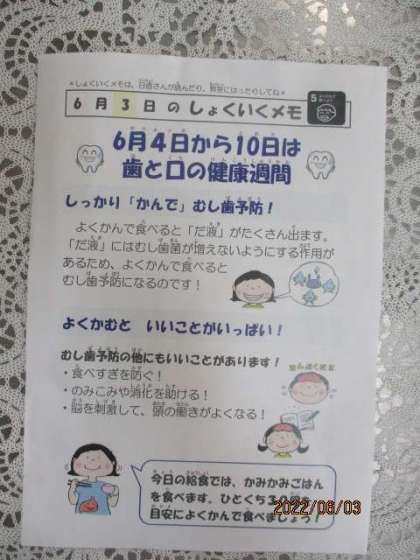 ＊しょくいくメモは、日直さんが読んだり、教室にはったりしてね＊
6月3日のしょくいくメモ
5
6月4日から10日は
歯と口の健康週間
しっかり「かんで」むし歯予防！
よくかんで食べると「だ液」がたくさん出ます。
「だ液」にはむし歯菌が増えないようにする作用が
あるため、よくかんで食べると
むし歯予防になるのです！
よくかむと いいことがいっぱい！
むし歯予防の他にもいいことがあります！
・食べすぎを防ぐ！
・のみこみや消化を助ける！
・脳を刺激して、頭の働きがよくなる！
今日の給食では、かみかみごはん
を食べます。ひとくち30回を
目安によくかんで食べましょう！
2022/06/03